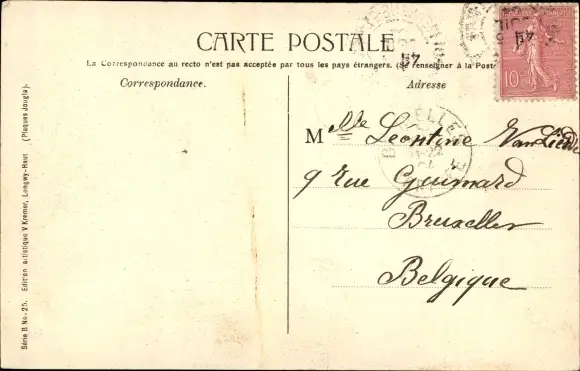 CARTE POSTALE
La Correspondance au recto n'est pas acceptée par tous les pays étrangers. (Se renseigner à la Poste
Correspondance.
Adresse
Mlle Leontine
9 Rue Guimard
Bruxelles
Belgique
10
BRUXELLES
Série B No. 25. Edition artistique V Kremer, Longwy-Haut (Plaques Jougla).